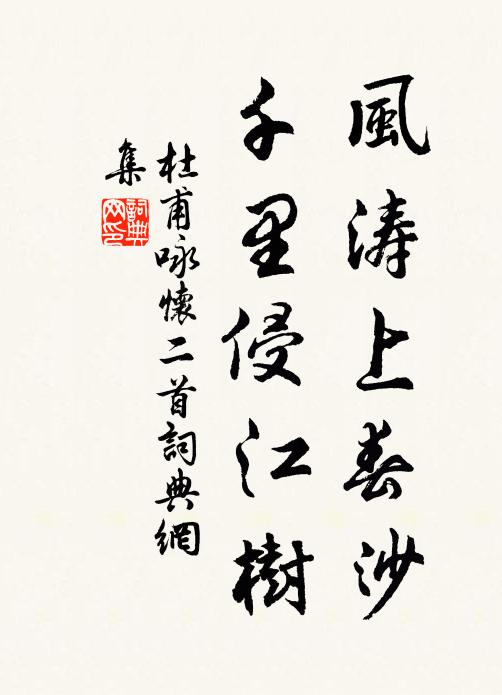 風涛上春沙
千里侵江樹
杜甫咏懷二首詞典網
集
詞典
网印